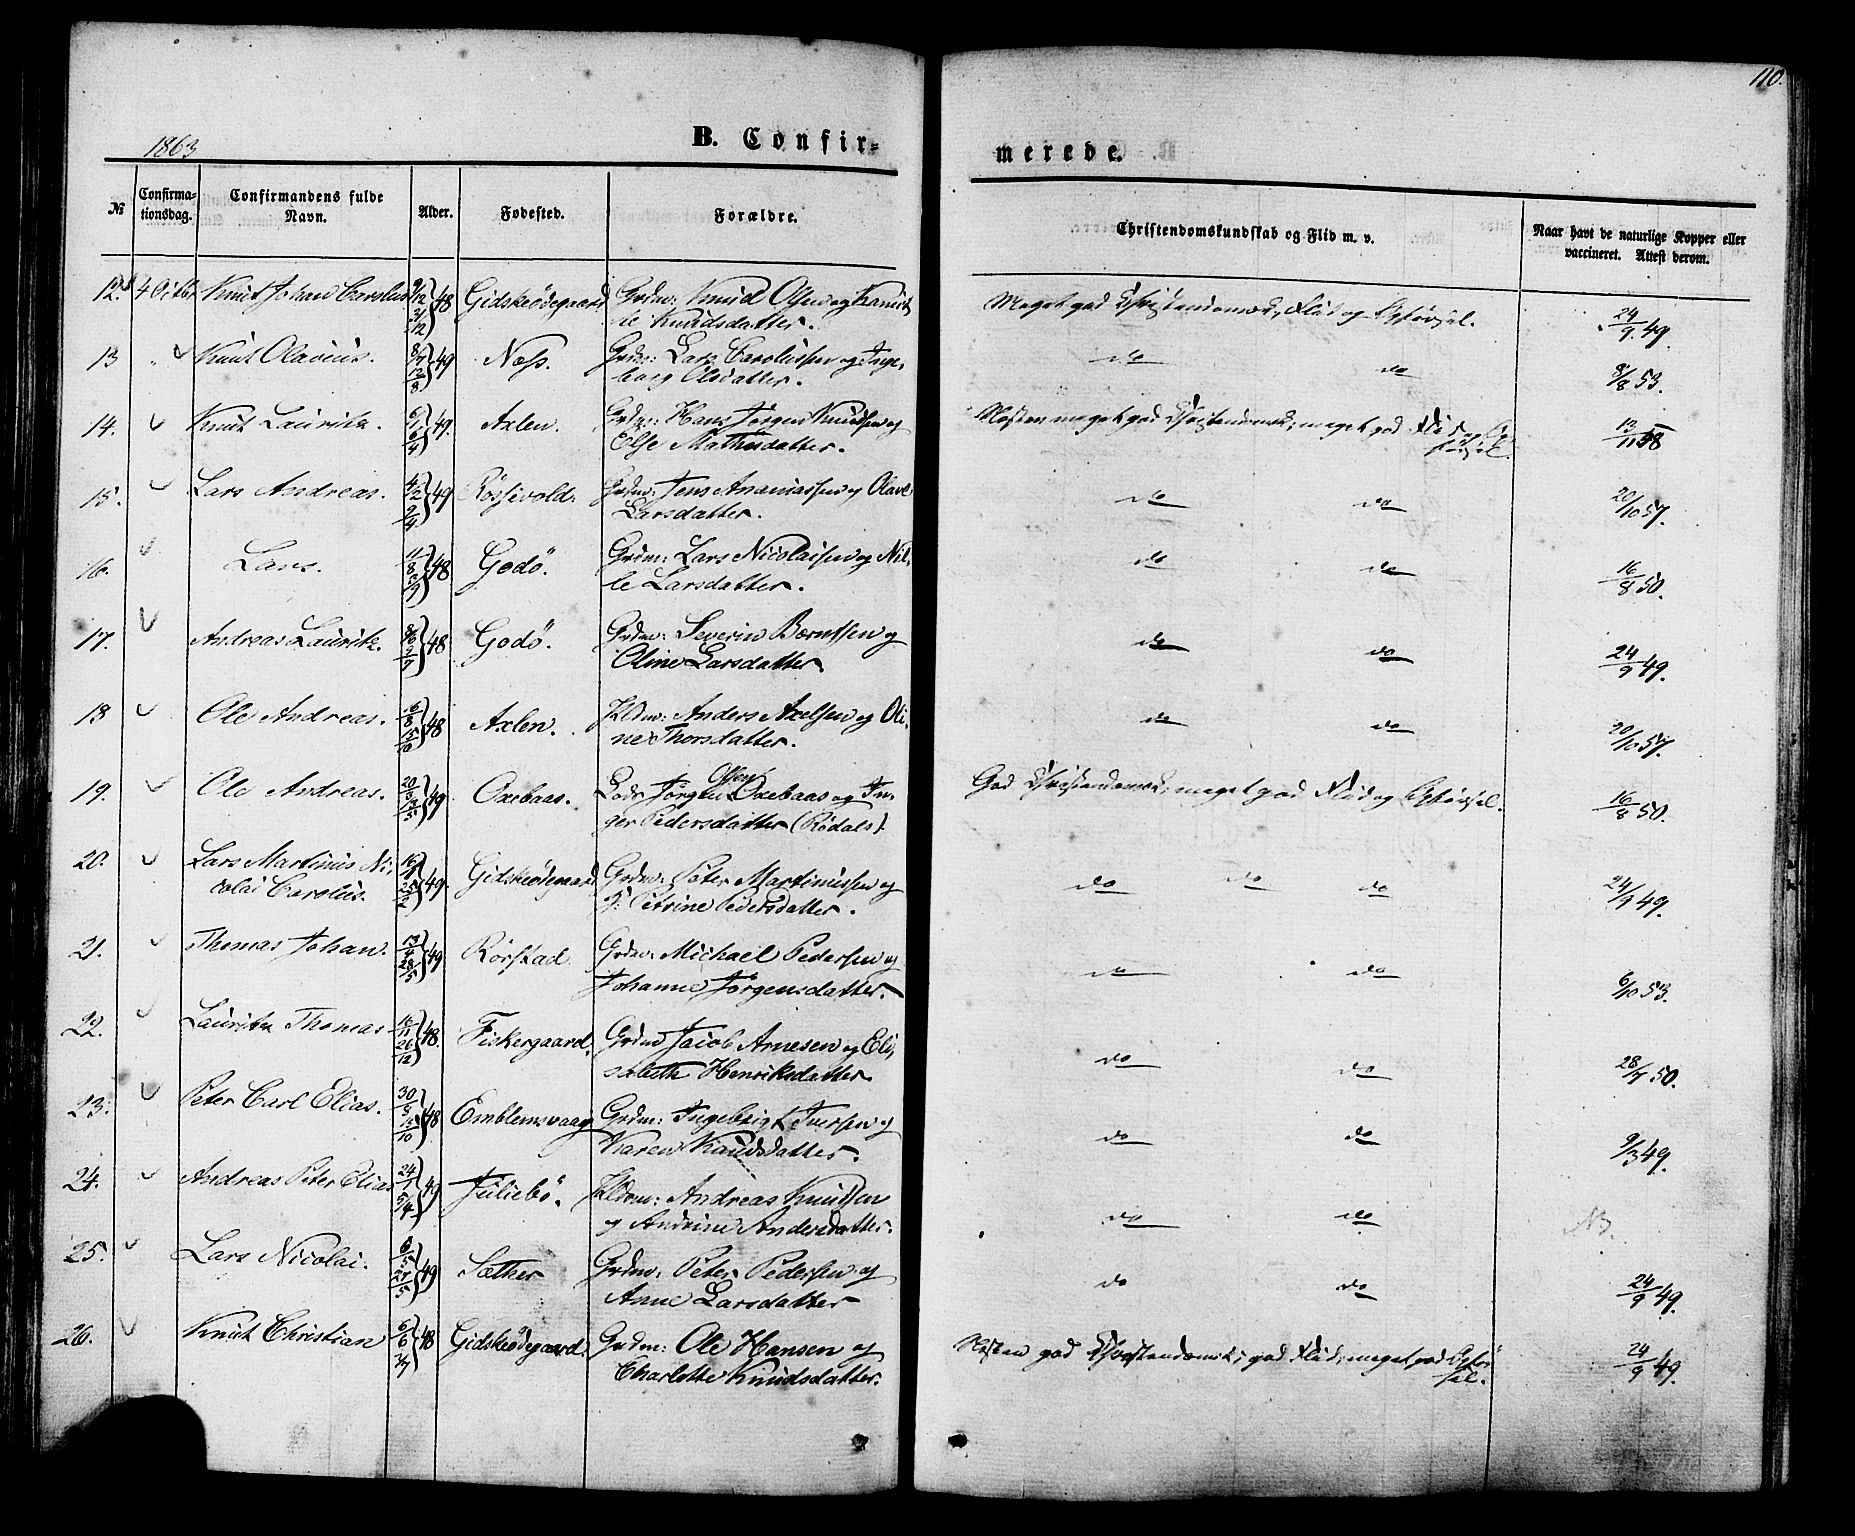 110.
1863
B. Confir-
merede.
№
Confirma-
tionsdag.
Confirmandens fulde
Navn.
Alder.
Fødested.
Forældre.
Christendomskundskab og Flid m. v.
Naar havt de naturlige Kopper eller
vaccineret. Attest derom.
12. 4 Octbr Knut Johan Carolus 9/12 31/12 } 48 Gidskeödegaard Grdm: Knud Olsen og
Knudsdatter. Meget god Christendomsk., Flid og Opførsel. 24/9 49.
13 " Knut Olavius. 8/7 12/8 } 49 Næss. Grdm: Lars Carolussen og Inge-
borg Olsdatter. do do 8/8 53.
14. Knut Lauritz. 6/1 6/4 } 49. Axlen. Grdm: Hans Jørgen Knudsen og
Else Mathisdatter. Næsten meget god Christendomsk., meget god Flid og Op-
førsel. 13/11 58
15. Lars Andreas. 4/2 9/4 } 49 Røssevold. Grdm: Jens Ananiassen og
Larsdatter. do do 20/10 57.
16. Lars. 11/8 3/9 } 48 Godö. Grdm: Lars Nicolaisen og Nil-
le Larsdatter. do do 16/8 50.
17. Andreas Lauritz. } 48 Godö. Grdm: Severin Bærntsen og
Oline Larsdatter do do 24/9 49.
18 Ole Andreas. 16/8 15/10 } 48 Axlen. Hdm: Anders Axelsen og Oli-
ne Thorsdatter. do do 20/10 57.
19. Ole Andreas. 20/3 13/5 } 49 Oxebaas. Jørgen Olsen Oxebaas og In-
ger Pedersdatter (Rødals). God Christendomsk., meget god Flid og Opførsel. 16/8 50.
20. Lars Martinus Ni-
colai Carolus. 16/1 25/2 } 49. Gidskeödegaard Grdm: Peter Martinussen og
Petrine Pedersdatter. do do do 24/9 49.
21. Thomas Johan. 13/4 28/5 } 49 Rørstad. Grdm: Michael Pedersen og
Johanne Jørgensdatter. do do 6/10 53.
22. Lauritz Thomas 16/11 26/12 } 48. Fiskergaard. Grdm Jacob Arnesen og Eli-
sabeth Henriksdatter. do do 28/7 50.
23. Peter Carl Elias. 30/8 15/10 } 48 Emblemsvaag Grdm: Ingebrigt Iversen og
Karen Knudsdatter. do do 9/3 49.
24. Andreas Peter Elias 24/1 5/4 } 49 Juliebö. Hdm: Andreas Knudsen
og Andrine Andersdatter. do do NB.
25. Lars Nicolai. 6/5 27/5 } 49 Sæther Grdm: Peter Pedersen og
Anne Larsdatter do do 24/9 49.
26. Knut Christian 6/6 } 48 Gidskeödegaard. Grdm: Ole Hansen og
Charlotte Knudsdatter. Næsten god Christendomsk., god Flid, meget god Opfør-
sel. 24/9 49.